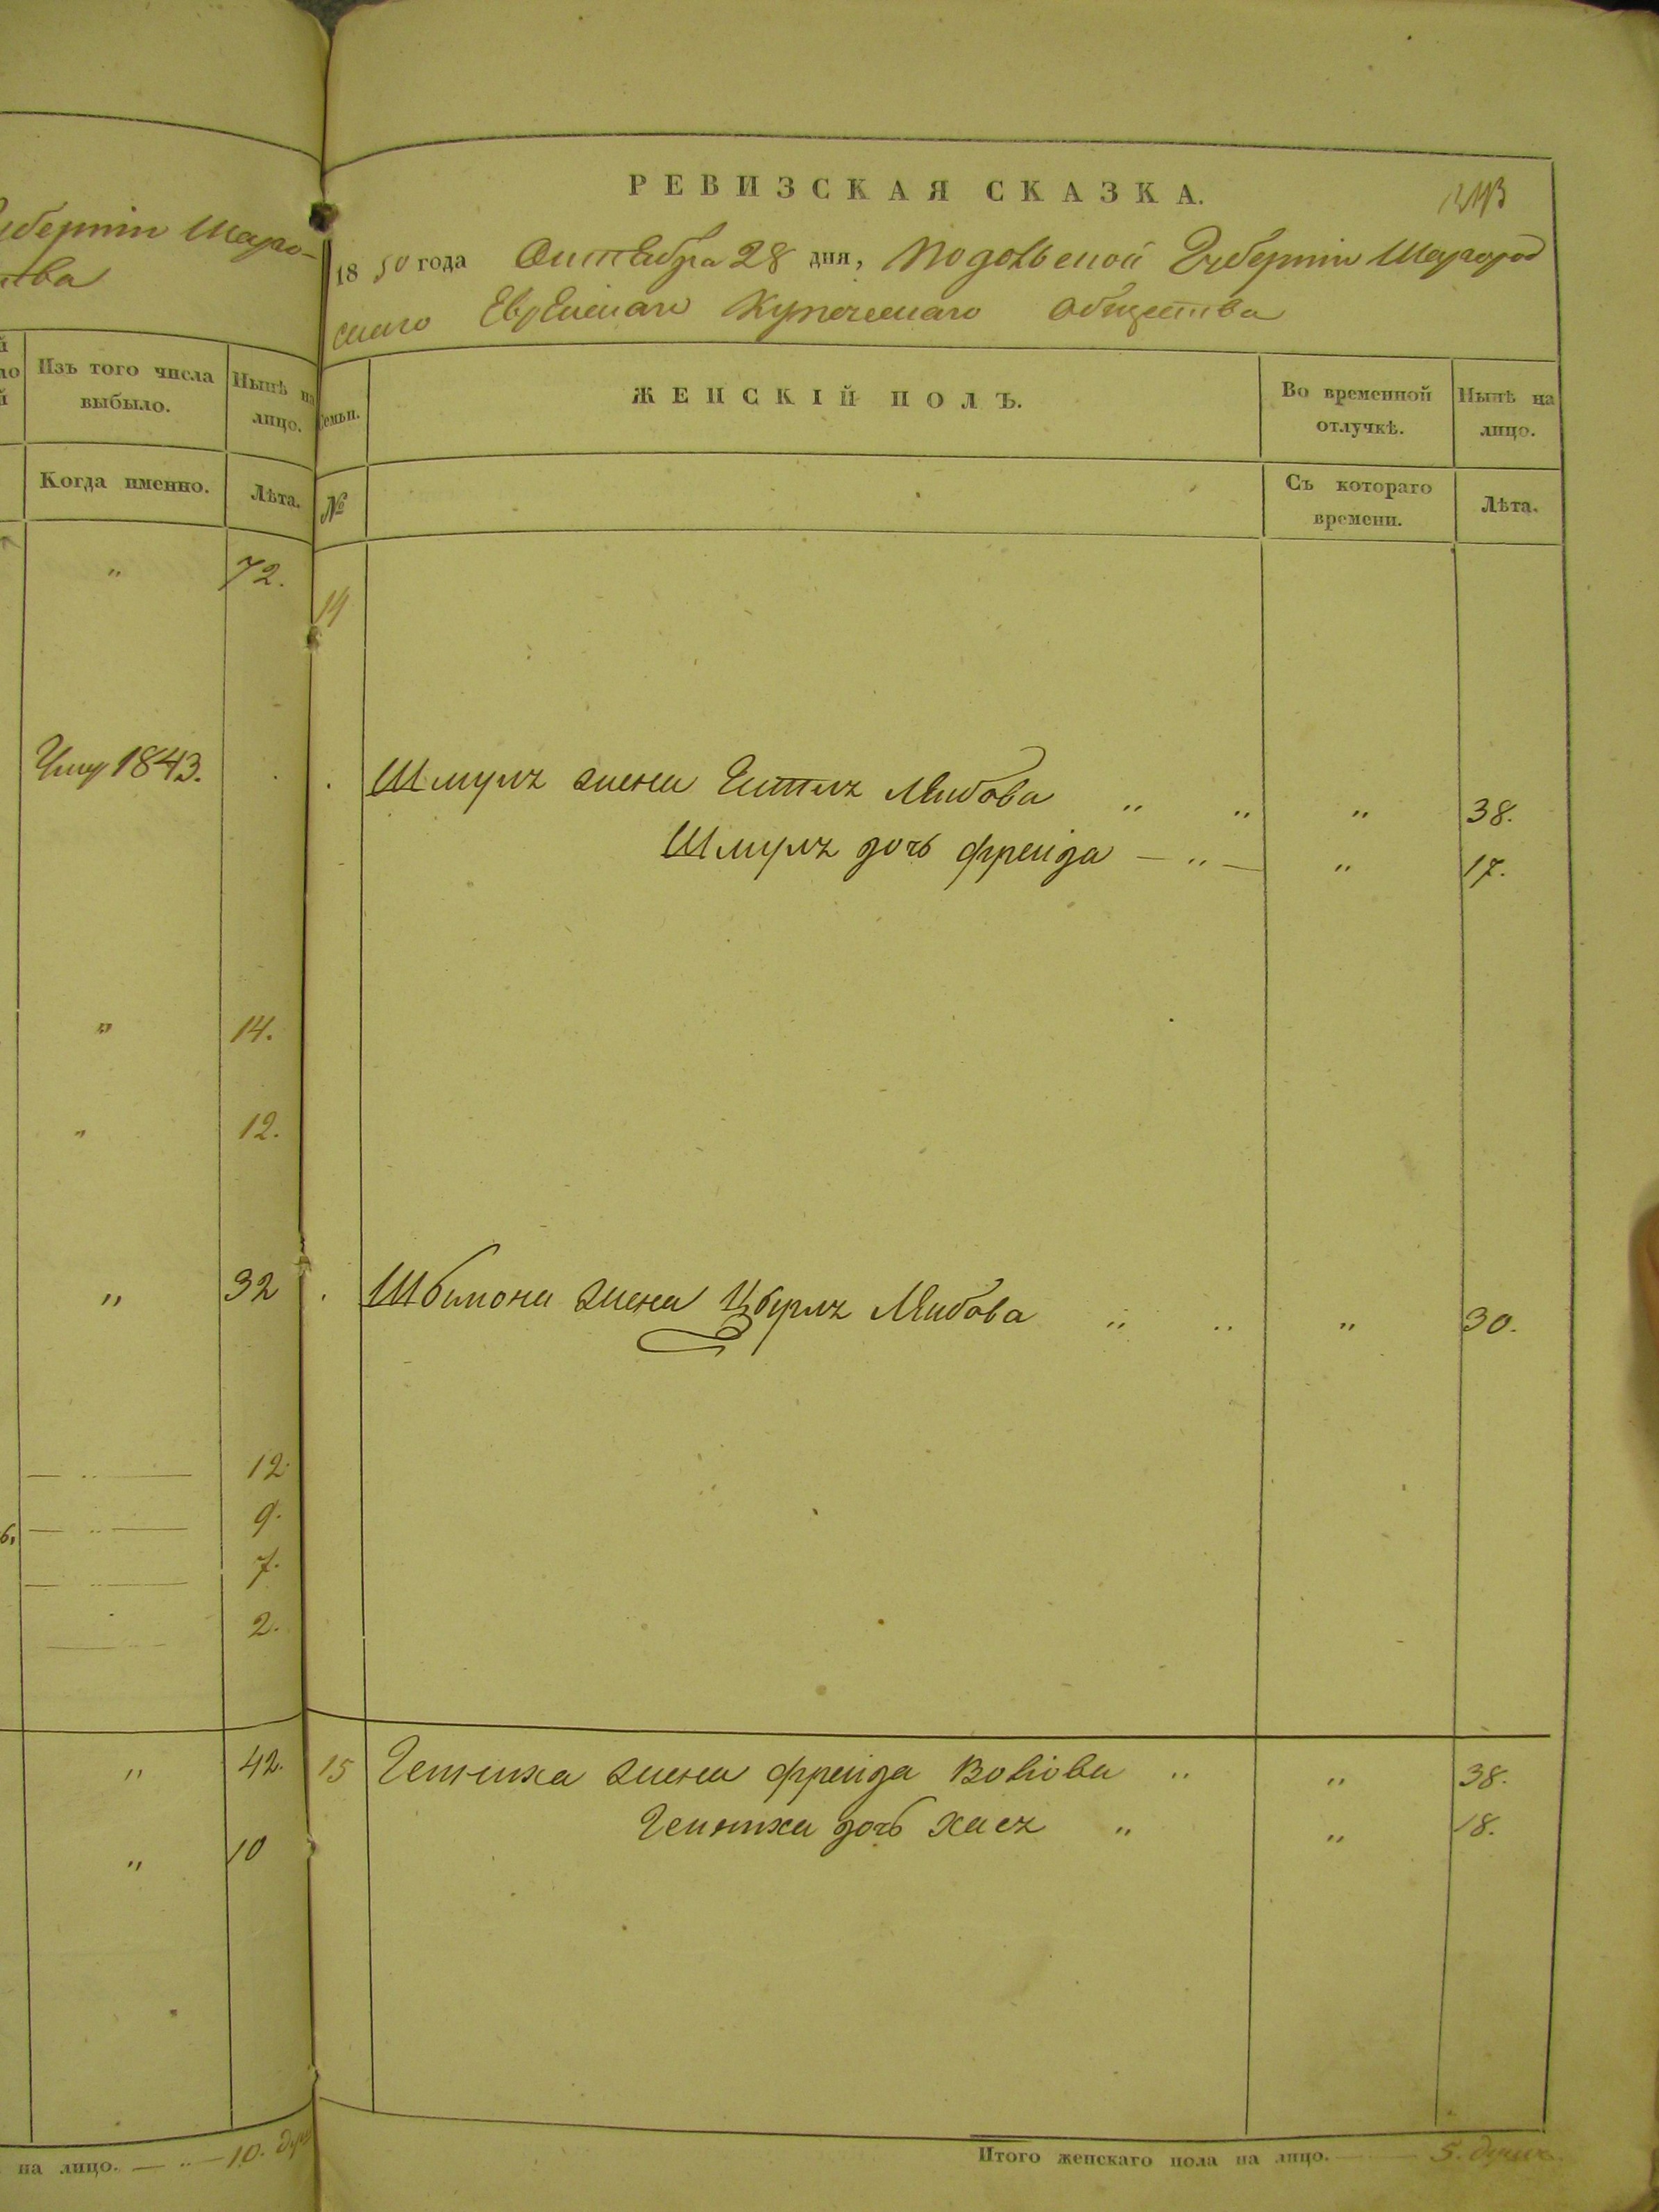 губерніи Шаро-
тва
Изъ того числа выбыло.
Нынѣ на лицо.
Когда именно.
Лѣта.
" 72.
1843.
" 14.
" 12.
" 32
— " — 12
— " — 9.
— " — 7.
2.
" 42.
" 10
на лицо. — " — 10. душ
РЕВИЗСКАЯ СКАЗКА.
1850 года Октября 28 дня, Подольской Губерніи Шаргород
скаго Еврейскаго Купеческаго Общества
Семьи.
ЖЕНСКІЙ ПОЛЪ.
Во временной отлучкѣ.
Нынѣ на лицо.
№
Съ котораго времени.
Лѣта.
14
Шмуля жена Естля Лейбова " " " 38.
Шмуля дочь фрейда — " — " 17.
Шимона жена Лейбова " " " 30.
15 жена фрейда Волкова " " 38.
дочь Хася " " 18.
Итого женскаго пола на лицо. — 5. душъ